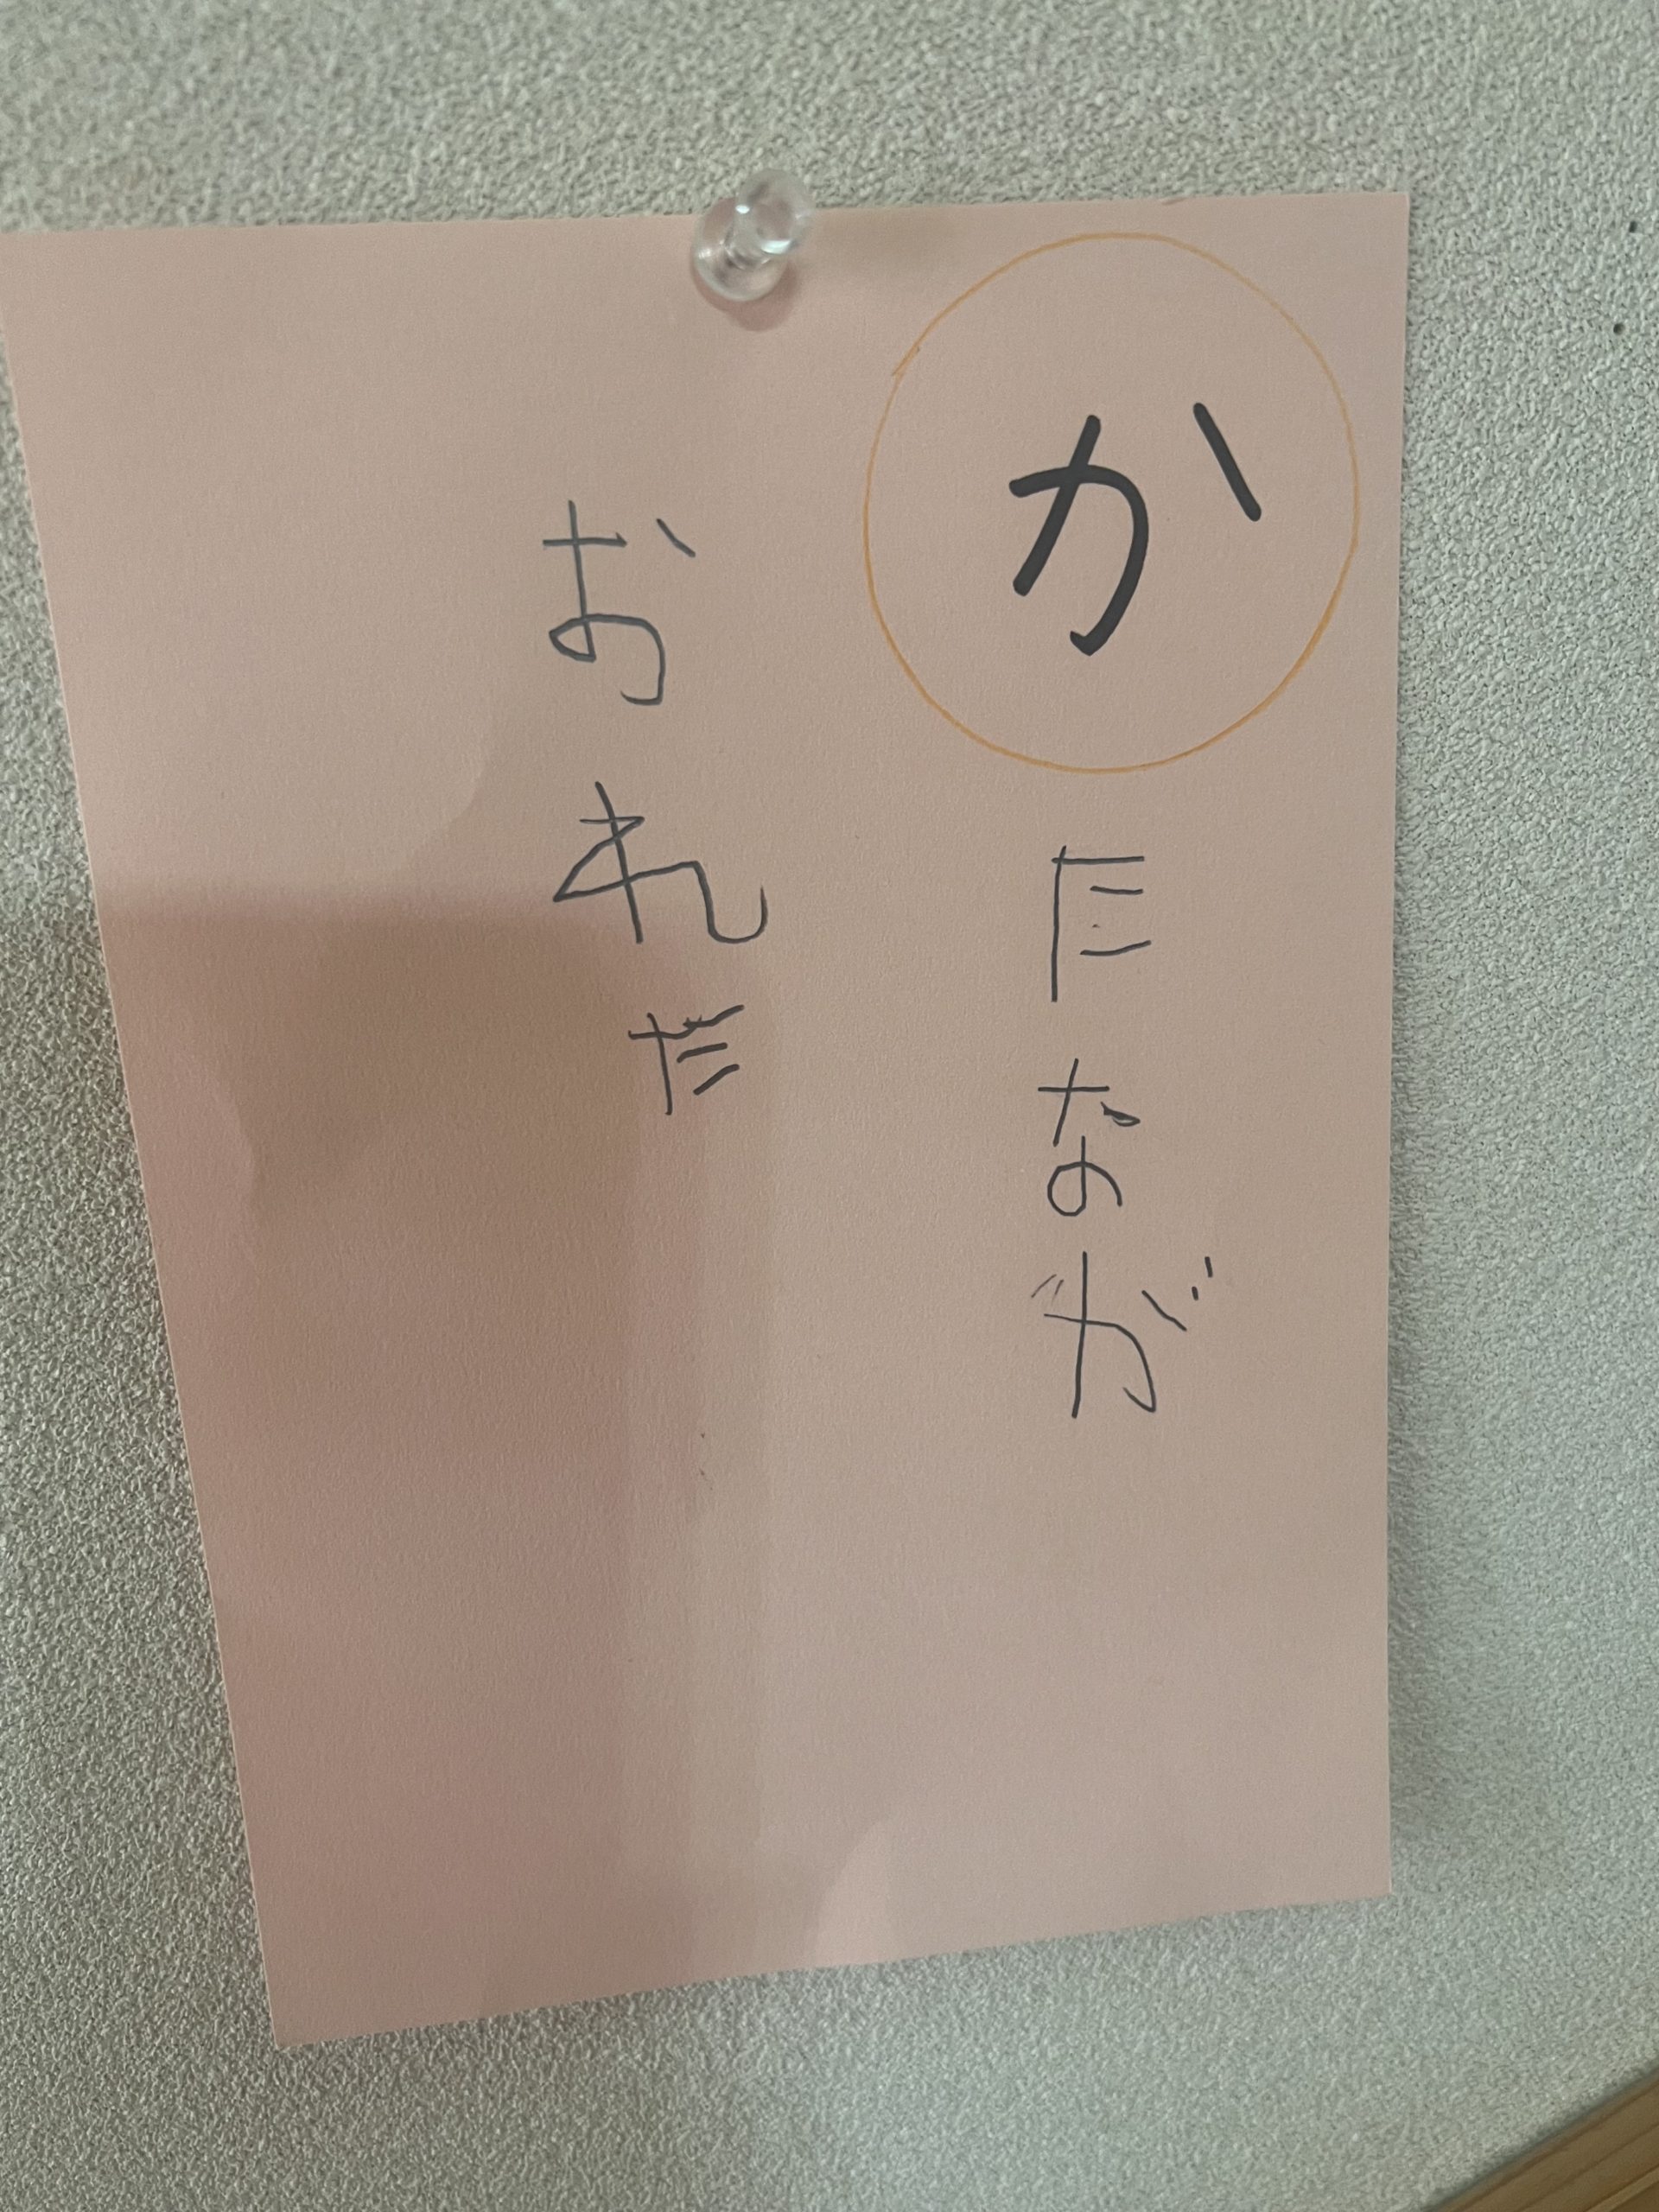 かたなが
おれた